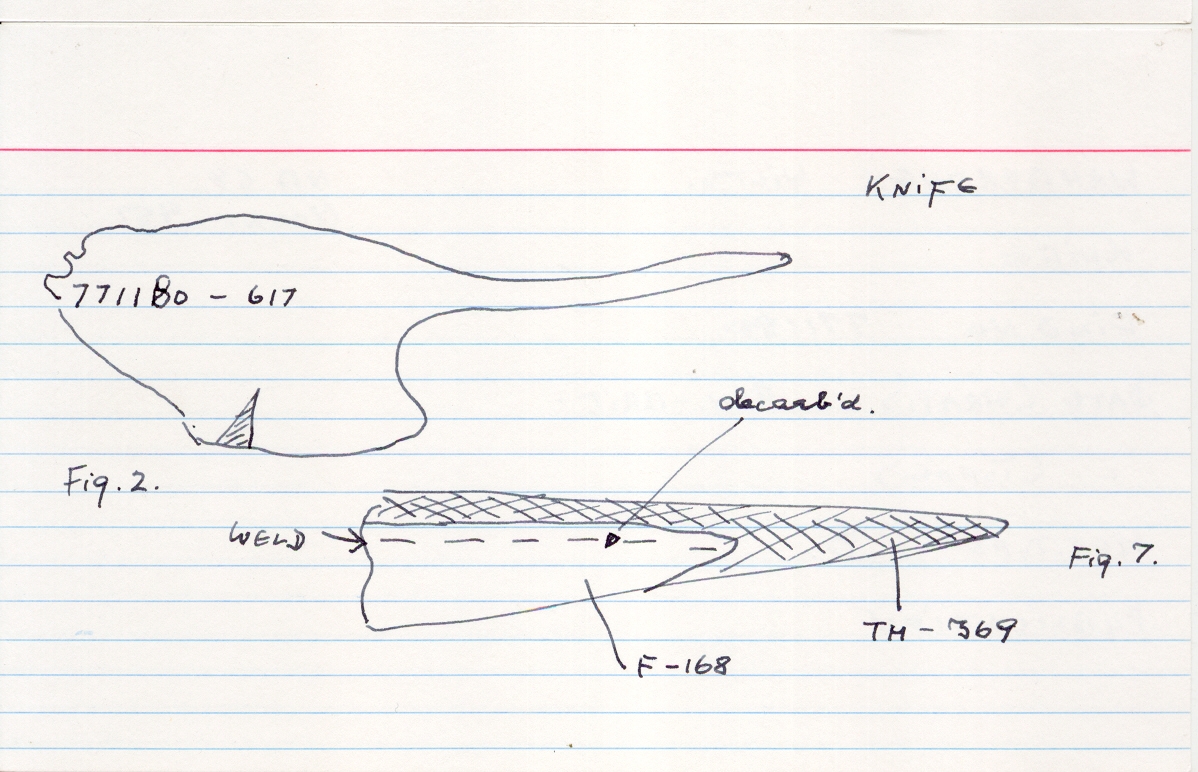 KNiFE
771180 - 617
decarb'd.
Fig. 2.
WELD
Fig. 7.
TH - 369
F - 168